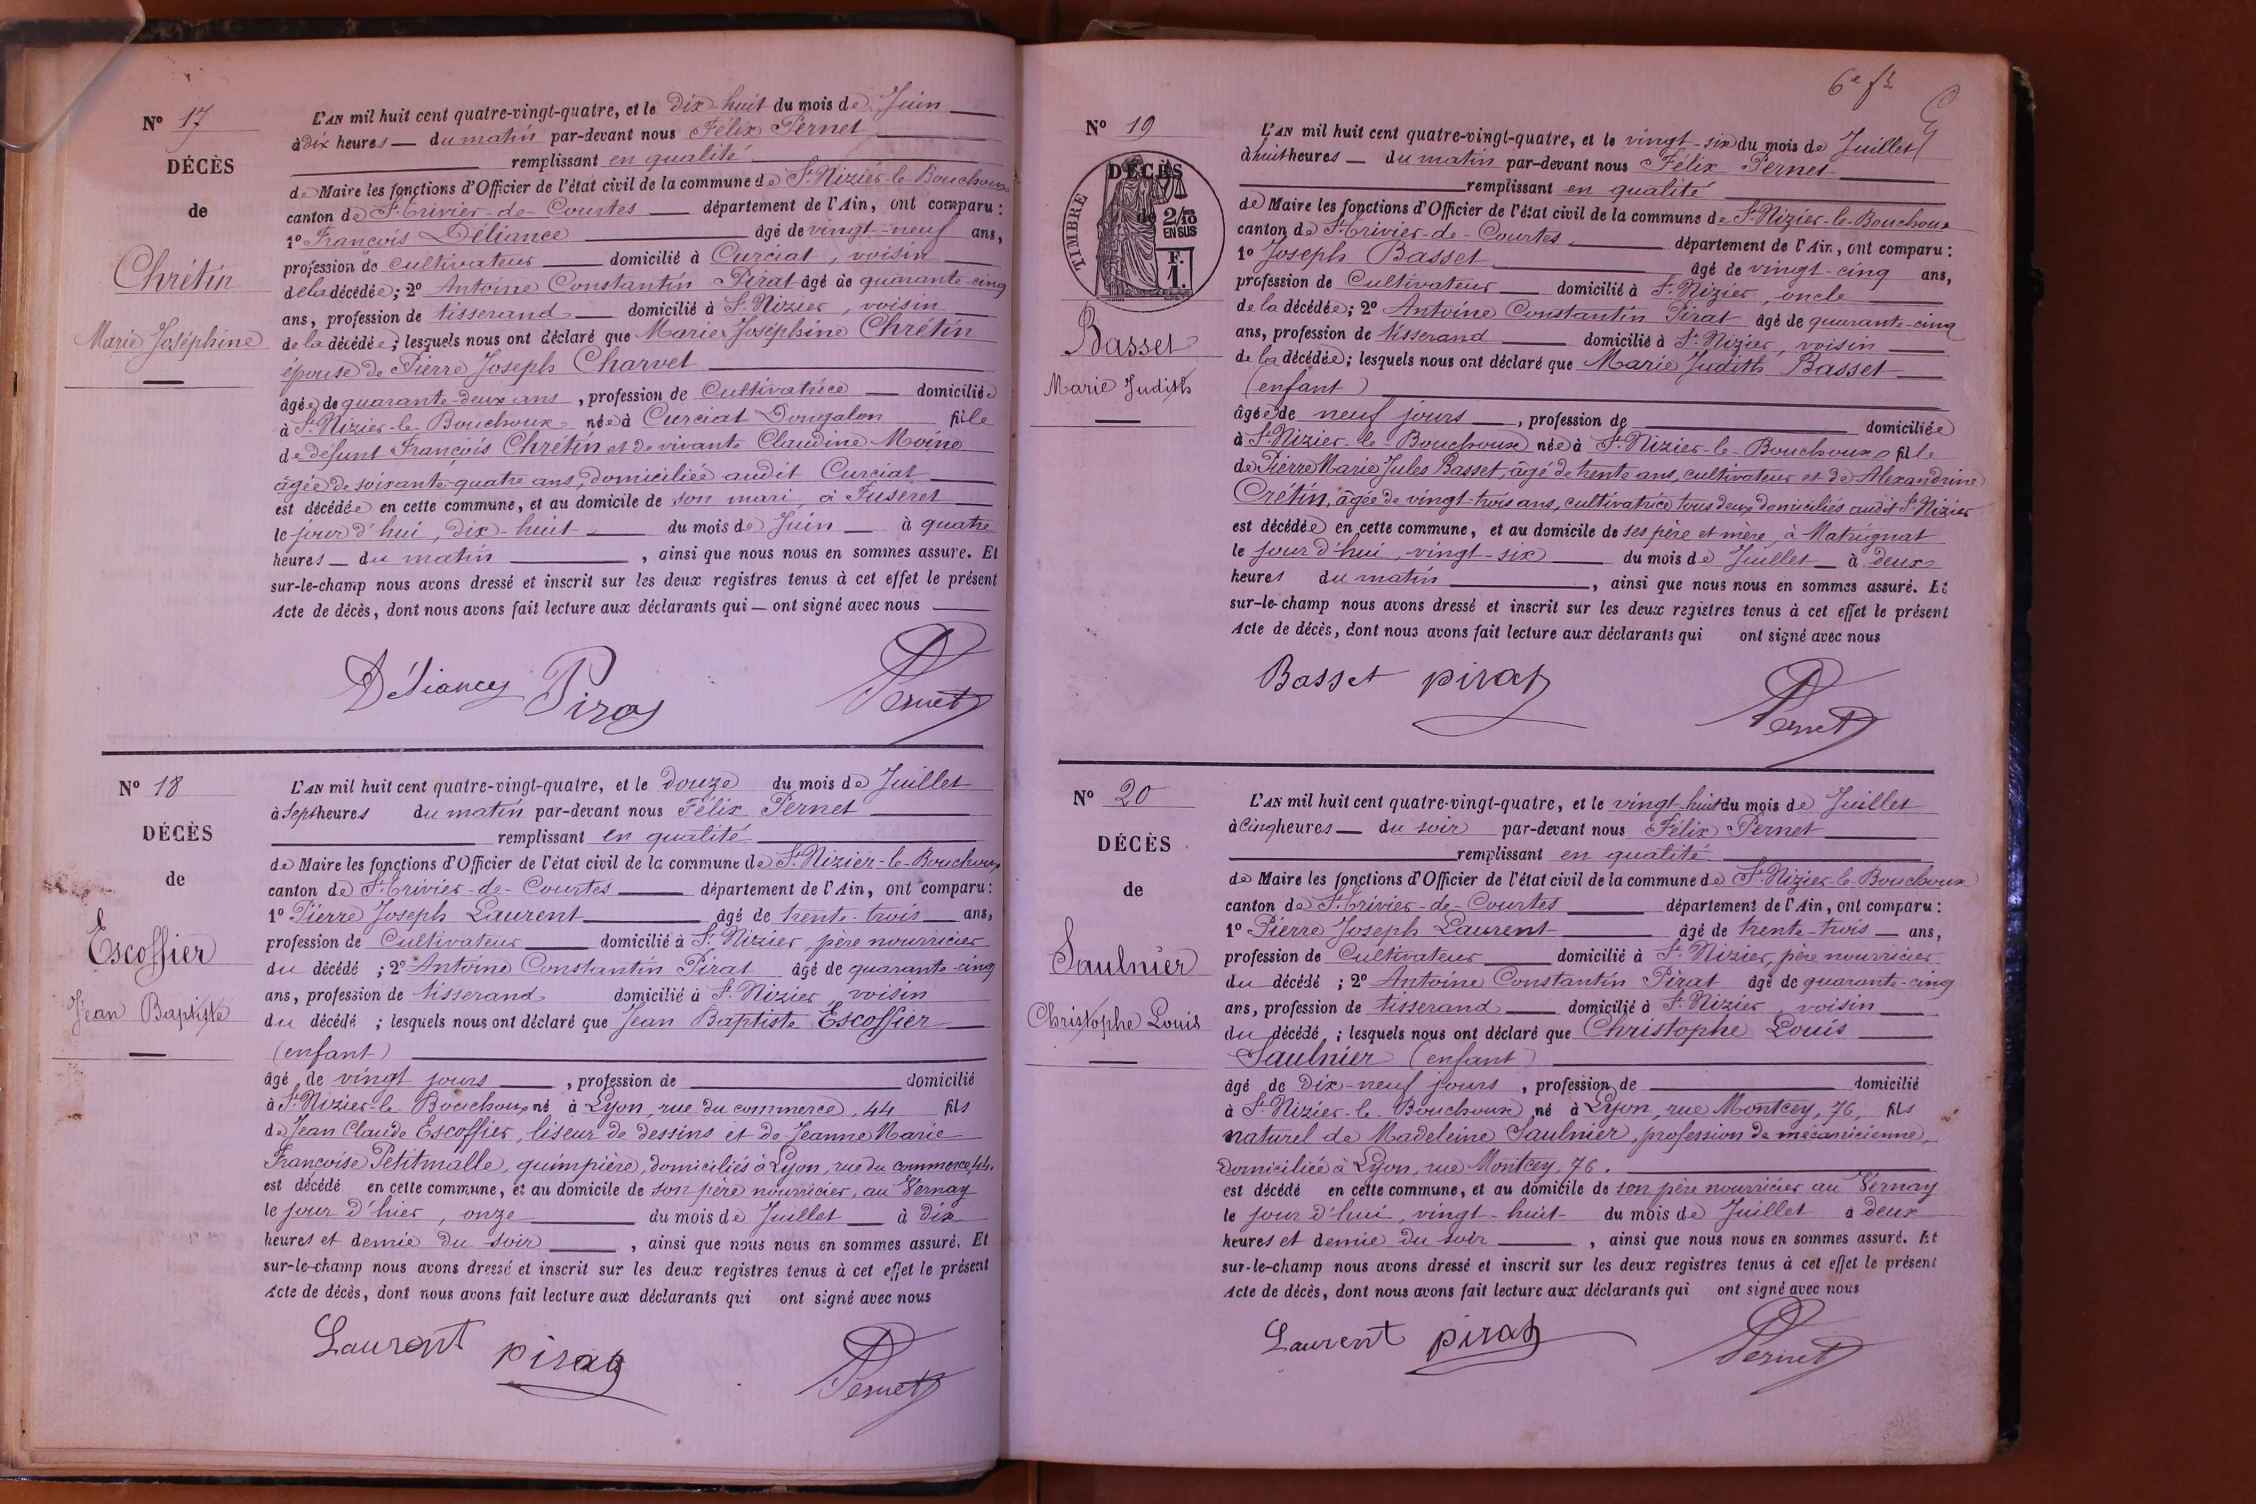 N° 17
DÉCÈS
de
Chrétin
Marie Joséphine
L'AN mil huit cent quatre-vingt-quatre, et le dix-huit du mois de Juin
à dix heures du matin par-devant nous Félix Pernet
remplissant en qualité
de Maire les fonctions d'Officier de l'état civil de la commune de St Nizier-le-Bouchoux
canton de St Trivier-de-Courtes département de l'Ain, ont comparu :
1° François Déliance âgé de vingt-neuf ans,
profession de cultivateur domicilié à Curciat, voisin
de la décédée ; 2° Antoine Constantin Pirat âgé de quarante-cinq
ans, profession de tisserand domicilié à St Nizier, voisin
de la décédée ; lesquels nous ont déclaré que Marie Joséphine Chrétin
épouse de Pierre Joseph Charvet
âgée de quarante-deux ans, profession de Cultivatrice domiciliée
à St Nizier-le-Bouchoux née à Curciat Dongalon fille
de défunt François Chrétin et de vivante Claudine Moine
âgée de soixante-quatre ans, domiciliée audit Curciat
est décédée en cette commune, et au domicile de son mari, à Fuseret
le jour d'hui, dix-huit du mois de Juin à quatre
heures du matin, ainsi que nous nous en sommes assuré. Et
sur-le-champ nous avons dressé et inscrit sur les deux registres tenus à cet effet le présent
Acte de décès, dont nous avons fait lecture aux déclarants qui ont signé avec nous
Déliance Pirat Pernet
N° 18
DÉCÈS
de
Escoffier
Jean Baptiste
L'AN mil huit cent quatre-vingt-quatre, et le douze du mois de Juillet
à Sept heures du matin par-devant nous Félix Pernet
remplissant en qualité
de Maire les fonctions d'Officier de l'état civil de la commune de St Nizier-le-Bouchoux
canton de St Trivier-de-Courtes département de l'Ain, ont comparu :
1° Pierre Joseph Laurent âgé de trente-trois ans,
profession de Cultivateur domicilié à St Nizier, père nourricier
du décédé ; 2° Antoine Constantin Pirat âgé de quarante-cinq
ans, profession de tisserand domicilié à St Nizier, voisin
du décédé ; lesquels nous ont déclaré que Jean Baptiste Escoffier
(enfant)
âgé de vingt jours, profession de domicilié
à St Nizier-le-Bouchoux né à Lyon, rue du commerce, 44 fils
de Jean Claude Escoffier, liseur de dessins et de Jeanne Marie
Françoise Petitmalle, guimpière, domiciliés à Lyon, rue du commerce, 44.
est décédé en cette commune, et au domicile de son père nourricier, au Vernay
le jour d'hier, onze du mois de Juillet à dix
heures et demie du soir, ainsi que nous nous en sommes assuré. Et
sur-le-champ nous avons dressé et inscrit sur les deux registres tenus à cet effet le présent
Acte de décès, dont nous avons fait lecture aux déclarants qui ont signé avec nous
Laurent pirat Pernet
6e ft
N° 19
DÉCÈS
de
TIMBRE
2/10
EN SUS
F.
1.
Basset
Marie Judith
L'AN mil huit cent quatre-vingt-quatre, et le vingt-six du mois de Juillet
à huit heures du matin par-devant nous Félix Pernet
remplissant en qualité
de Maire les fonctions d'Officier de l'état civil de la commune de St Nizier-le-Bouchoux
canton de St Trivier-de-Courtes département de l'Ain, ont comparu :
1° Joseph Basset âgé de vingt-cinq ans,
profession de Cultivateur domicilié à St Nizier, oncle
de la décédée ; 2° Antoine Constantin Pirat âgé de quarante-cinq
ans, profession de tisserand domicilié à St Nizier, voisin
de la décédée ; lesquels nous ont déclaré que Marie Judith Basset
(enfant)
âgée de neuf jours, profession de domiciliée
à St Nizier-le-Bouchoux née à St Nizier-le-Bouchoux fille
de Pierre Marie Jules Basset, âgé de trente ans, cultivateur et de Alexandrine
Crétin, âgée de vingt-trois ans, cultivatrice tous deux domiciliés audit St Nizier
est décédée en cette commune, et au domicile de ses père et mère, à Matrignat
le jour d'hui, vingt-six du mois de Juillet à deux
heures du matin, ainsi que nous nous en sommes assuré. Et
sur-le-champ nous avons dressé et inscrit sur les deux registres tenus à cet effet le présent
Acte de décès, dont nous avons fait lecture aux déclarants qui ont signé avec nous
Basset pirat Pernet
N° 20
DÉCÈS
de
Saulnier
Christophe Louis
L'AN mil huit cent quatre-vingt-quatre, et le vingt-huit du mois de Juillet
à Cinq heures du soir par-devant nous Félix Pernet
remplissant en qualité
de Maire les fonctions d'Officier de l'état civil de la commune de St Nizier-le-Bouchoux
canton de St Trivier-de-Courtes département de l'Ain, ont comparu :
1° Pierre Joseph Laurent âgé de trente-trois ans,
profession de Cultivateur domicilié à St Nizier, père nourricier
du décédé ; 2° Antoine Constantin Pirat âgé de quarante-cinq
ans, profession de tisserand domicilié à St Nizier voisin
du décédé ; lesquels nous ont déclaré que Christophe Louis
Saulnier (enfant)
âgé de dix-neuf jours, profession de domicilié
à St Nizier-le-Bouchoux né à Lyon, rue Montcey, 76, fils
naturel de Madeleine Saulnier, profession de mécanicienne,
Domiciliée à Lyon, rue Montcey, 76.
est décédé en cette commune, et au domicile de son père nourricier au Vernay
le jour d'hui, vingt-huit du mois de Juillet à deux
heures et demie du soir, ainsi que nous nous en sommes assuré. Et
sur-le-champ nous avons dressé et inscrit sur les deux registres tenus à cet effet le présent
Acte de décès, dont nous avons fait lecture aux déclarants qui ont signé avec nous
Laurent pirat Pernet